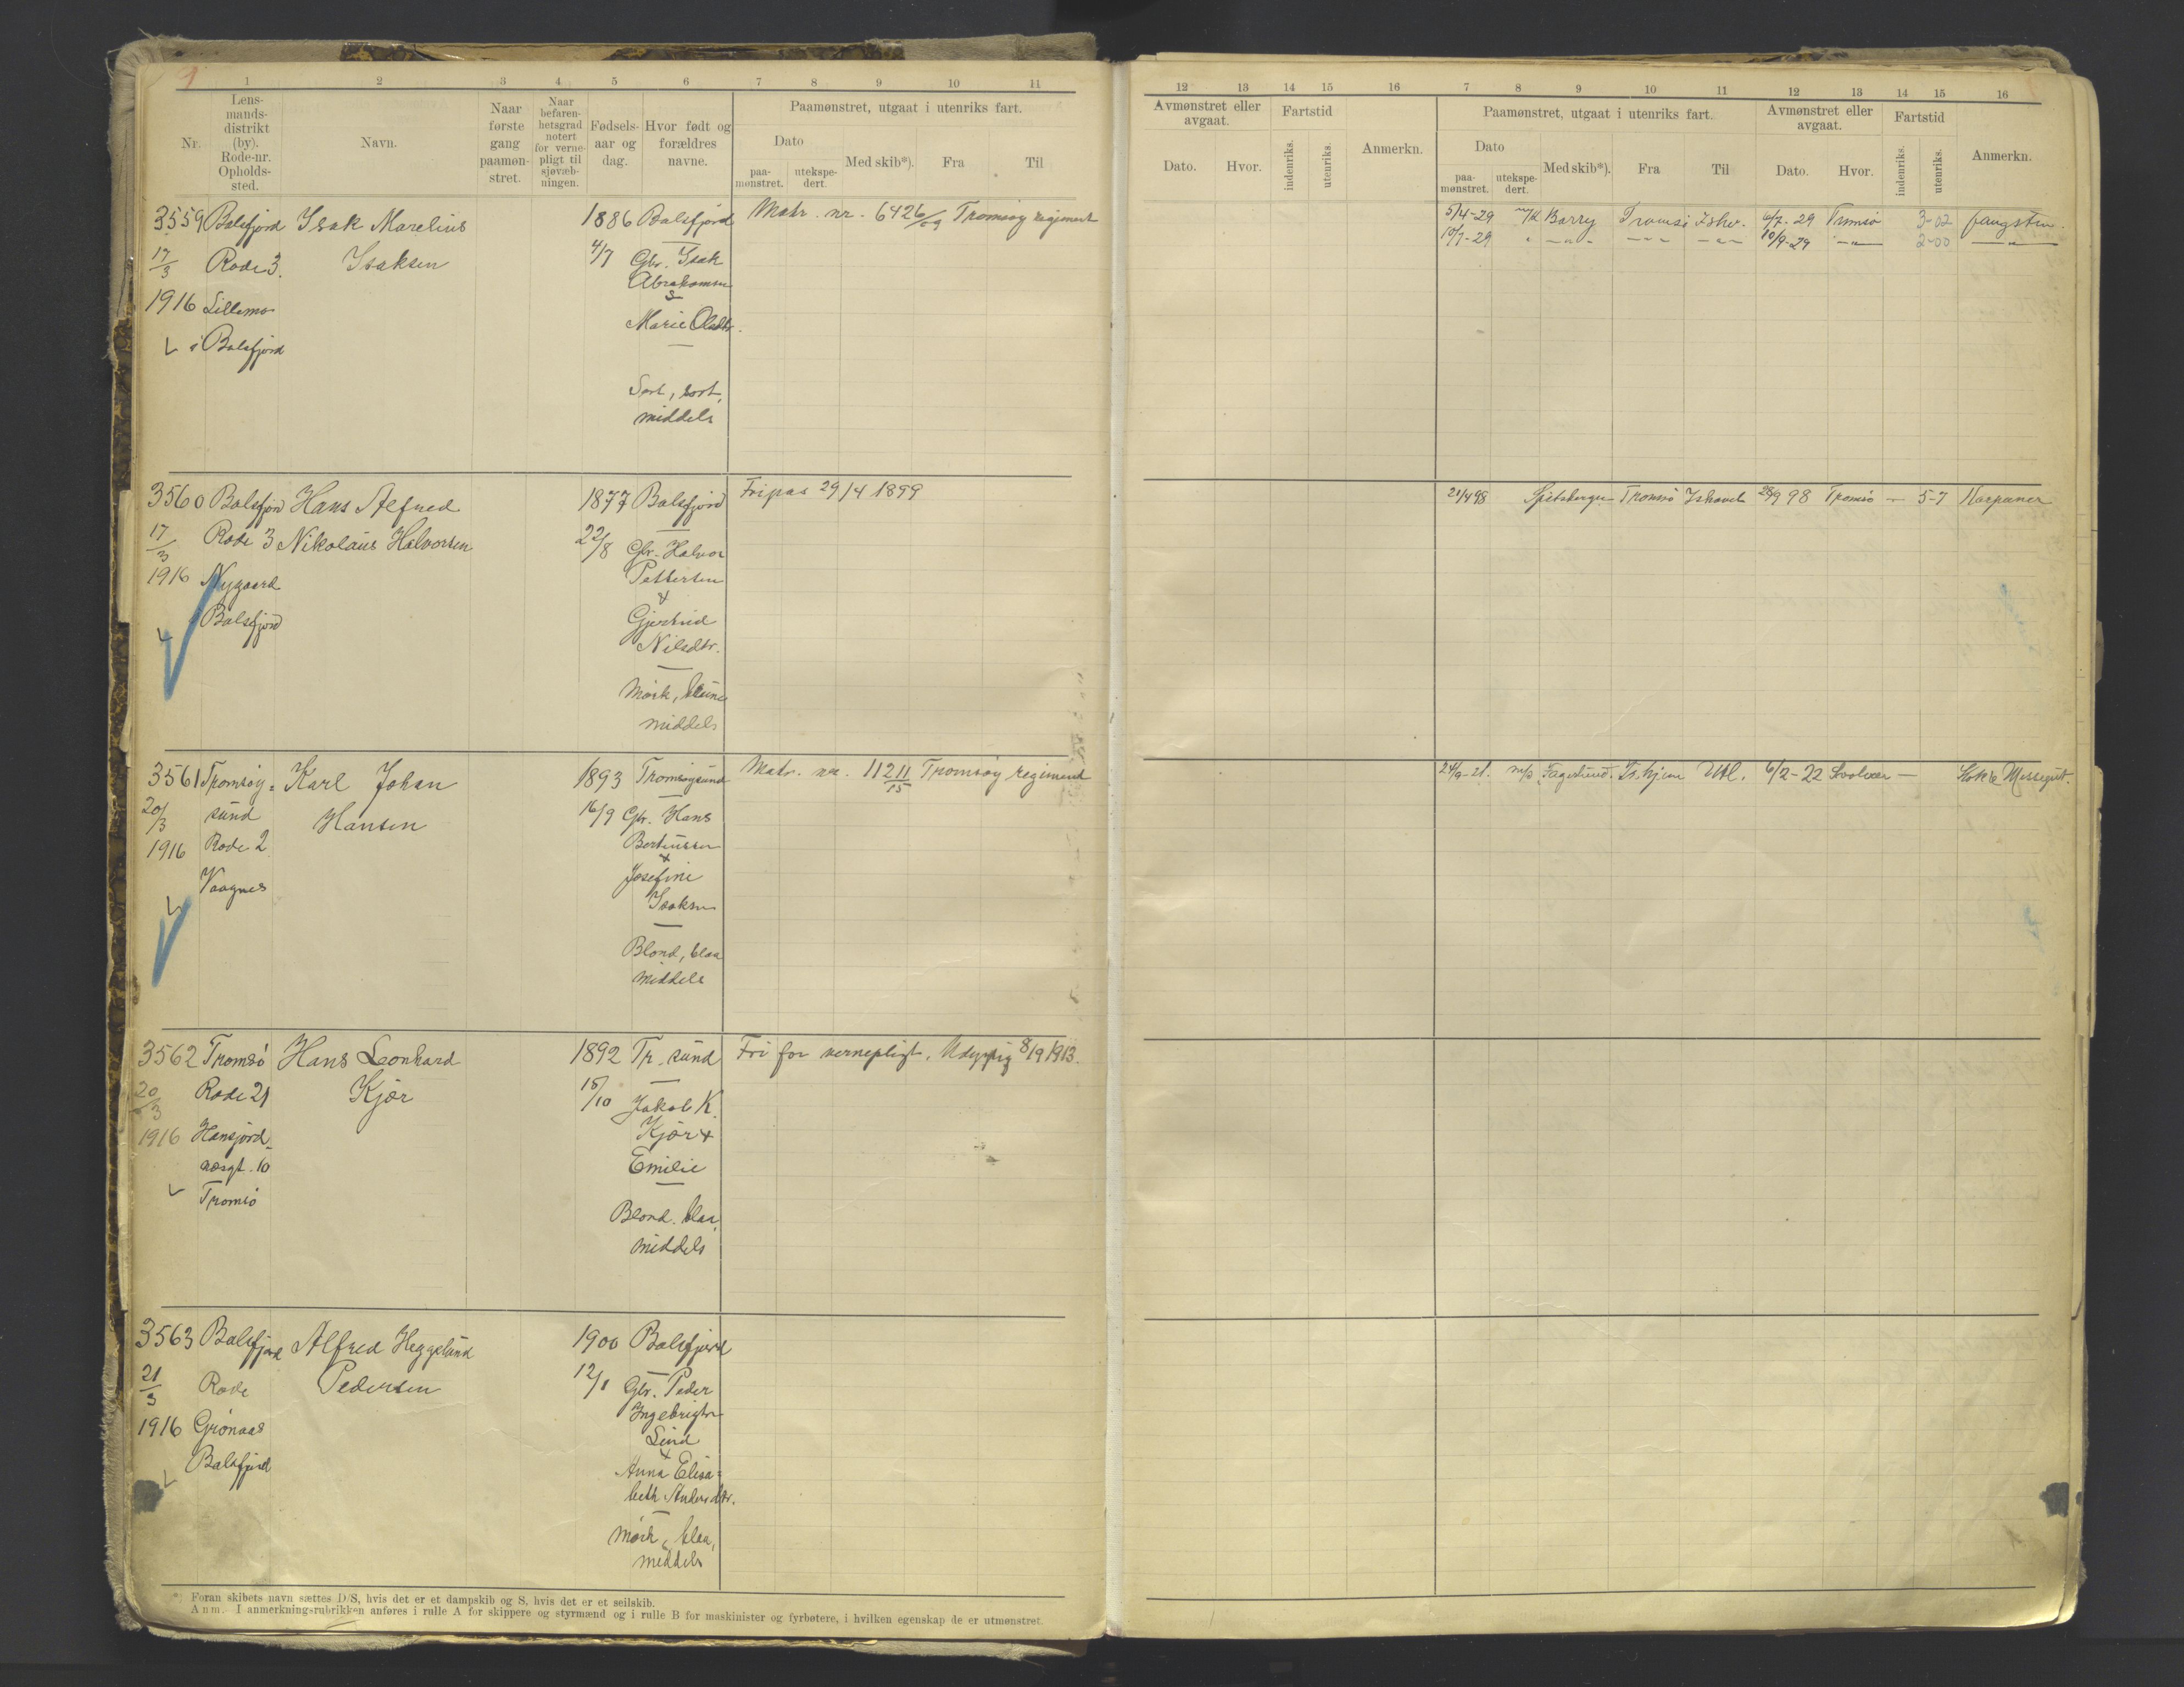 1 2 3 4 5 6 7 8 9 10 11
Nr.
Lens-
mands-
distrikt
(by).
Rode-nr.
Opholds-
sted.
Navn.
Naar
første
gang
paamøn-
stret.
Naar
befaren-
hetsgrad
notert
for verne-
pligt til
sjøvæb-
ningen.
Fødsels-
aar og
dag.
Hvor født og
forældres
navne.
Paamønstret, utgaat i utenriks fart.
Dato
paa-
mønstret.
utekspe-
dert.
Med skib*).
Fra
Til
3559 Balsfjord Isak Marelius 1886 Balsfjord Matr. nr. 6426/09 Tromsøy regiment
17/3 Rode 3. Isaksen 4/7 Gbr. Isak
Abrahamsen
&
1916 Lillemo
Marie Olsdtr.
i Balsfjord
Sort, sort,
middels
3560 Balsfjord Hans Alfred 1877 Balsfjord Fripas 29/4 1899
17/3 Rode 3 Nikolaus Halvorsen 22/8 Gbr. Halvor
1916 Nygaard
Pettersen
&
i Balsfjord
Gjertrud
Nilsdtr.
Mörk, brune
middels
3561 Tromsøy- Karl Johan 1893 Tromsøysund Matr. nr. 112 11/15 Tromsøy regiment
20/3 sund Hansen 16/9 Gbr. Hans
1916 Rode 2
Bertinussen
&
Vaagnes
Josefine
Isaksen
Blond, blaa
middels
3562 Tromsö Hans Leonhard 1892 Tr. sund Fri for vernepligt. Udyktig 8/9 1913.
20/3 Rode 21 Kjær 15/10 Jakob K.
1916 Hansjord-
Kjær +
næsgt. 10
Emilie
Tromsö
Blond. blaa,
middels
3563 Balsfjord Alfred Heggelund 1900 Balsfjord
21/3 Rode Pedersen 12/1 Gbr. Peder
1916 Grönaas
Ingebrigtsen
Lind
&
Balsfjord
Anna Elisa-
beth Andersdtr.
Mörk, blaa,
middels
*) Foran skibets navn sættes D/S, hvis det er et dampskib og S, hvis det er et seilskib.
Anm. I anmerkningsrubrikken anføres i rulle A for skippere og styrmænd og i rulle B for maskinister og fyrbøtere, i hvilken egenskap de er utmønstret.
12 13 14 15 16 7 8 9 10 11 12 13 14 15 16
Avmønstret eller
avgaat.
Dato.
Hvor.
Fartstid
indenriks.
utenriks.
Anmerkn.
Paamønstret, utgaat i utenriks fart.
Dato
paa-
mønstret.
utekspe-
dert.
Med skib*).
Fra
Til
Avmønstret eller
avgaat.
Dato.
Hvor.
Fartstid
indenriks.
utenriks.
Anmerkn.
5/4-29 M/K Barry Tromsø Ishv. 6/7-29 Tromsø 3-02 fangstm.
10/7-29 " — " — — " — — " — 10/9-29 — " — 2-00 — " —
21/4 98 Spitsbergen Tromsö Ishavet 28/9 98 Tromsö — 5-7 Harpuner
24/9-21. m/s Fagerlund. Ts. hjem Utl. 6/2-22 Svolvær — Kok & Messegutt.